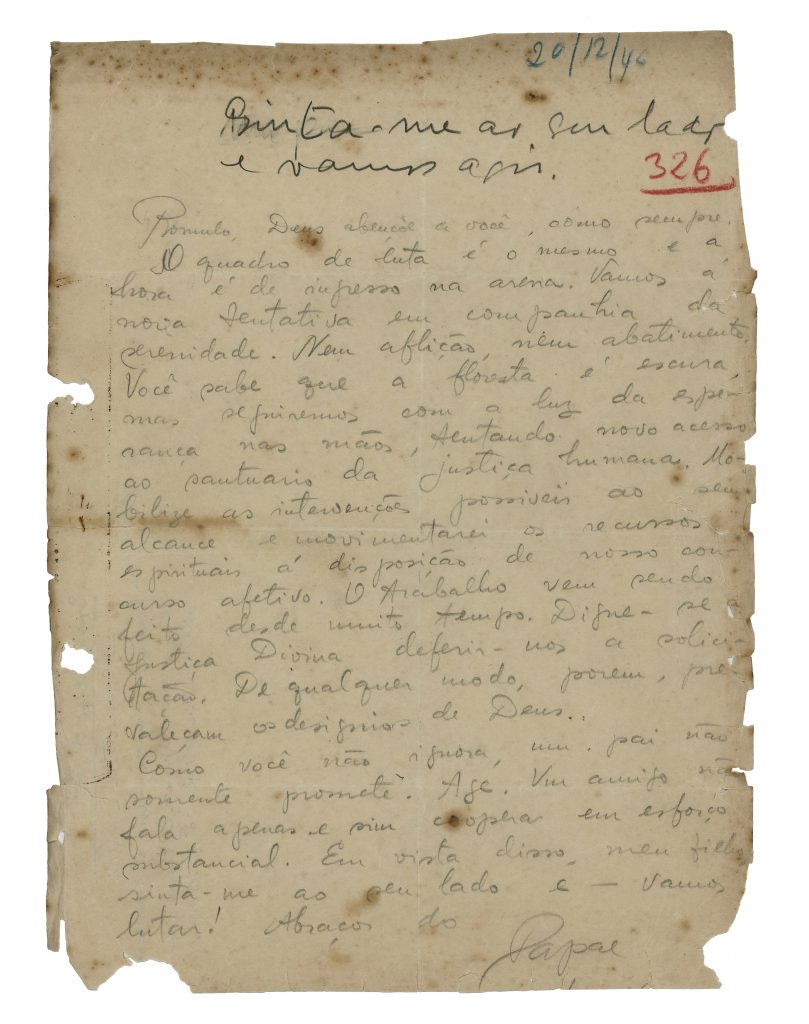 20/12/46
Sinta-me ao seu lado
e vamos agir.
326
Romulo, Deus abençôe a você, como sempre.
O quadro de luta é o mesmo e a
hora é de ingresso na arena. Vamos á
nova tentativa em companhia da
serenidade. Nem aflição, nem abatimento.
Você sabe que a floresta é escura,
mas seguiremos com a luz da espe-
rança nas mãos, tentando novo acesso
ao santuario da justiça humana. Mo-
bilize as intervenções possiveis ao seu
alcance e movimentarei os recursos
espirituais á disposição de nosso con-
curso afetivo. O trabalho vem sendo
feito desde muito tempo. Digne-se a
Justiça Divina deferir-nos a solici-
tação. De qualquer modo, porem, pre-
valeçam os designios de Deus..
Como você não ignora, um pai não
somente promete. Age. Um amigo não
fala apenas e sim coopera em esforço
substancial. Em vista disso, meu filho
sinta-me ao seu lado e — vamos
lutar! Abraços do
Papae